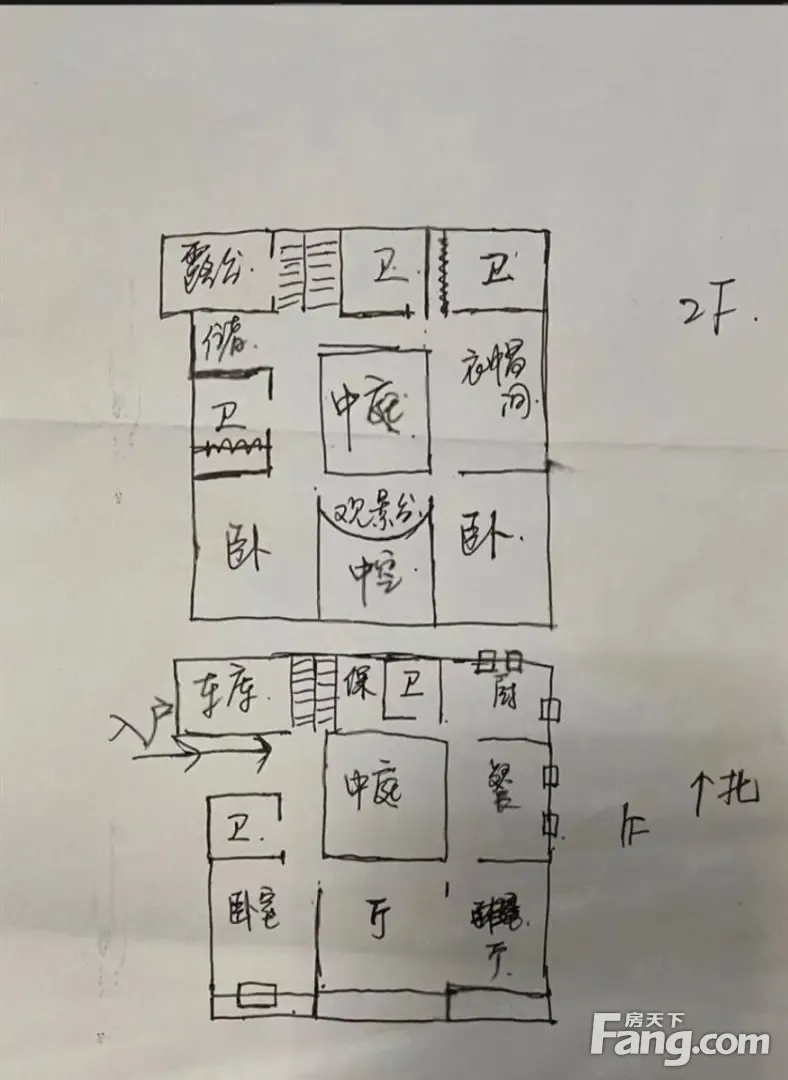 露台.
卫
卫
2F.
储
衣帽
间.
卫
中庭
观景台
卧
中空
卧.
车库.
保
卫
厨
入户
中庭
餐
↑北
1F
卫.
卧室
厅
厅.
房天下
Fang.com